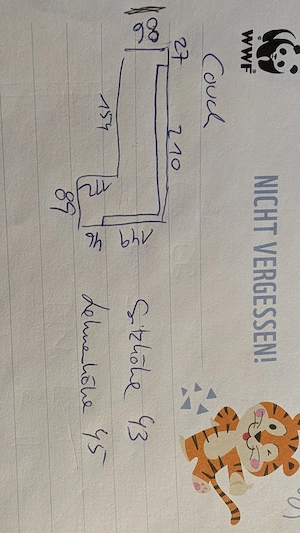 WWF
NICHT VERGESSEN!
Couch
27
210
154
149
46
Sitzhöhe 43
Lehnehöhe 45